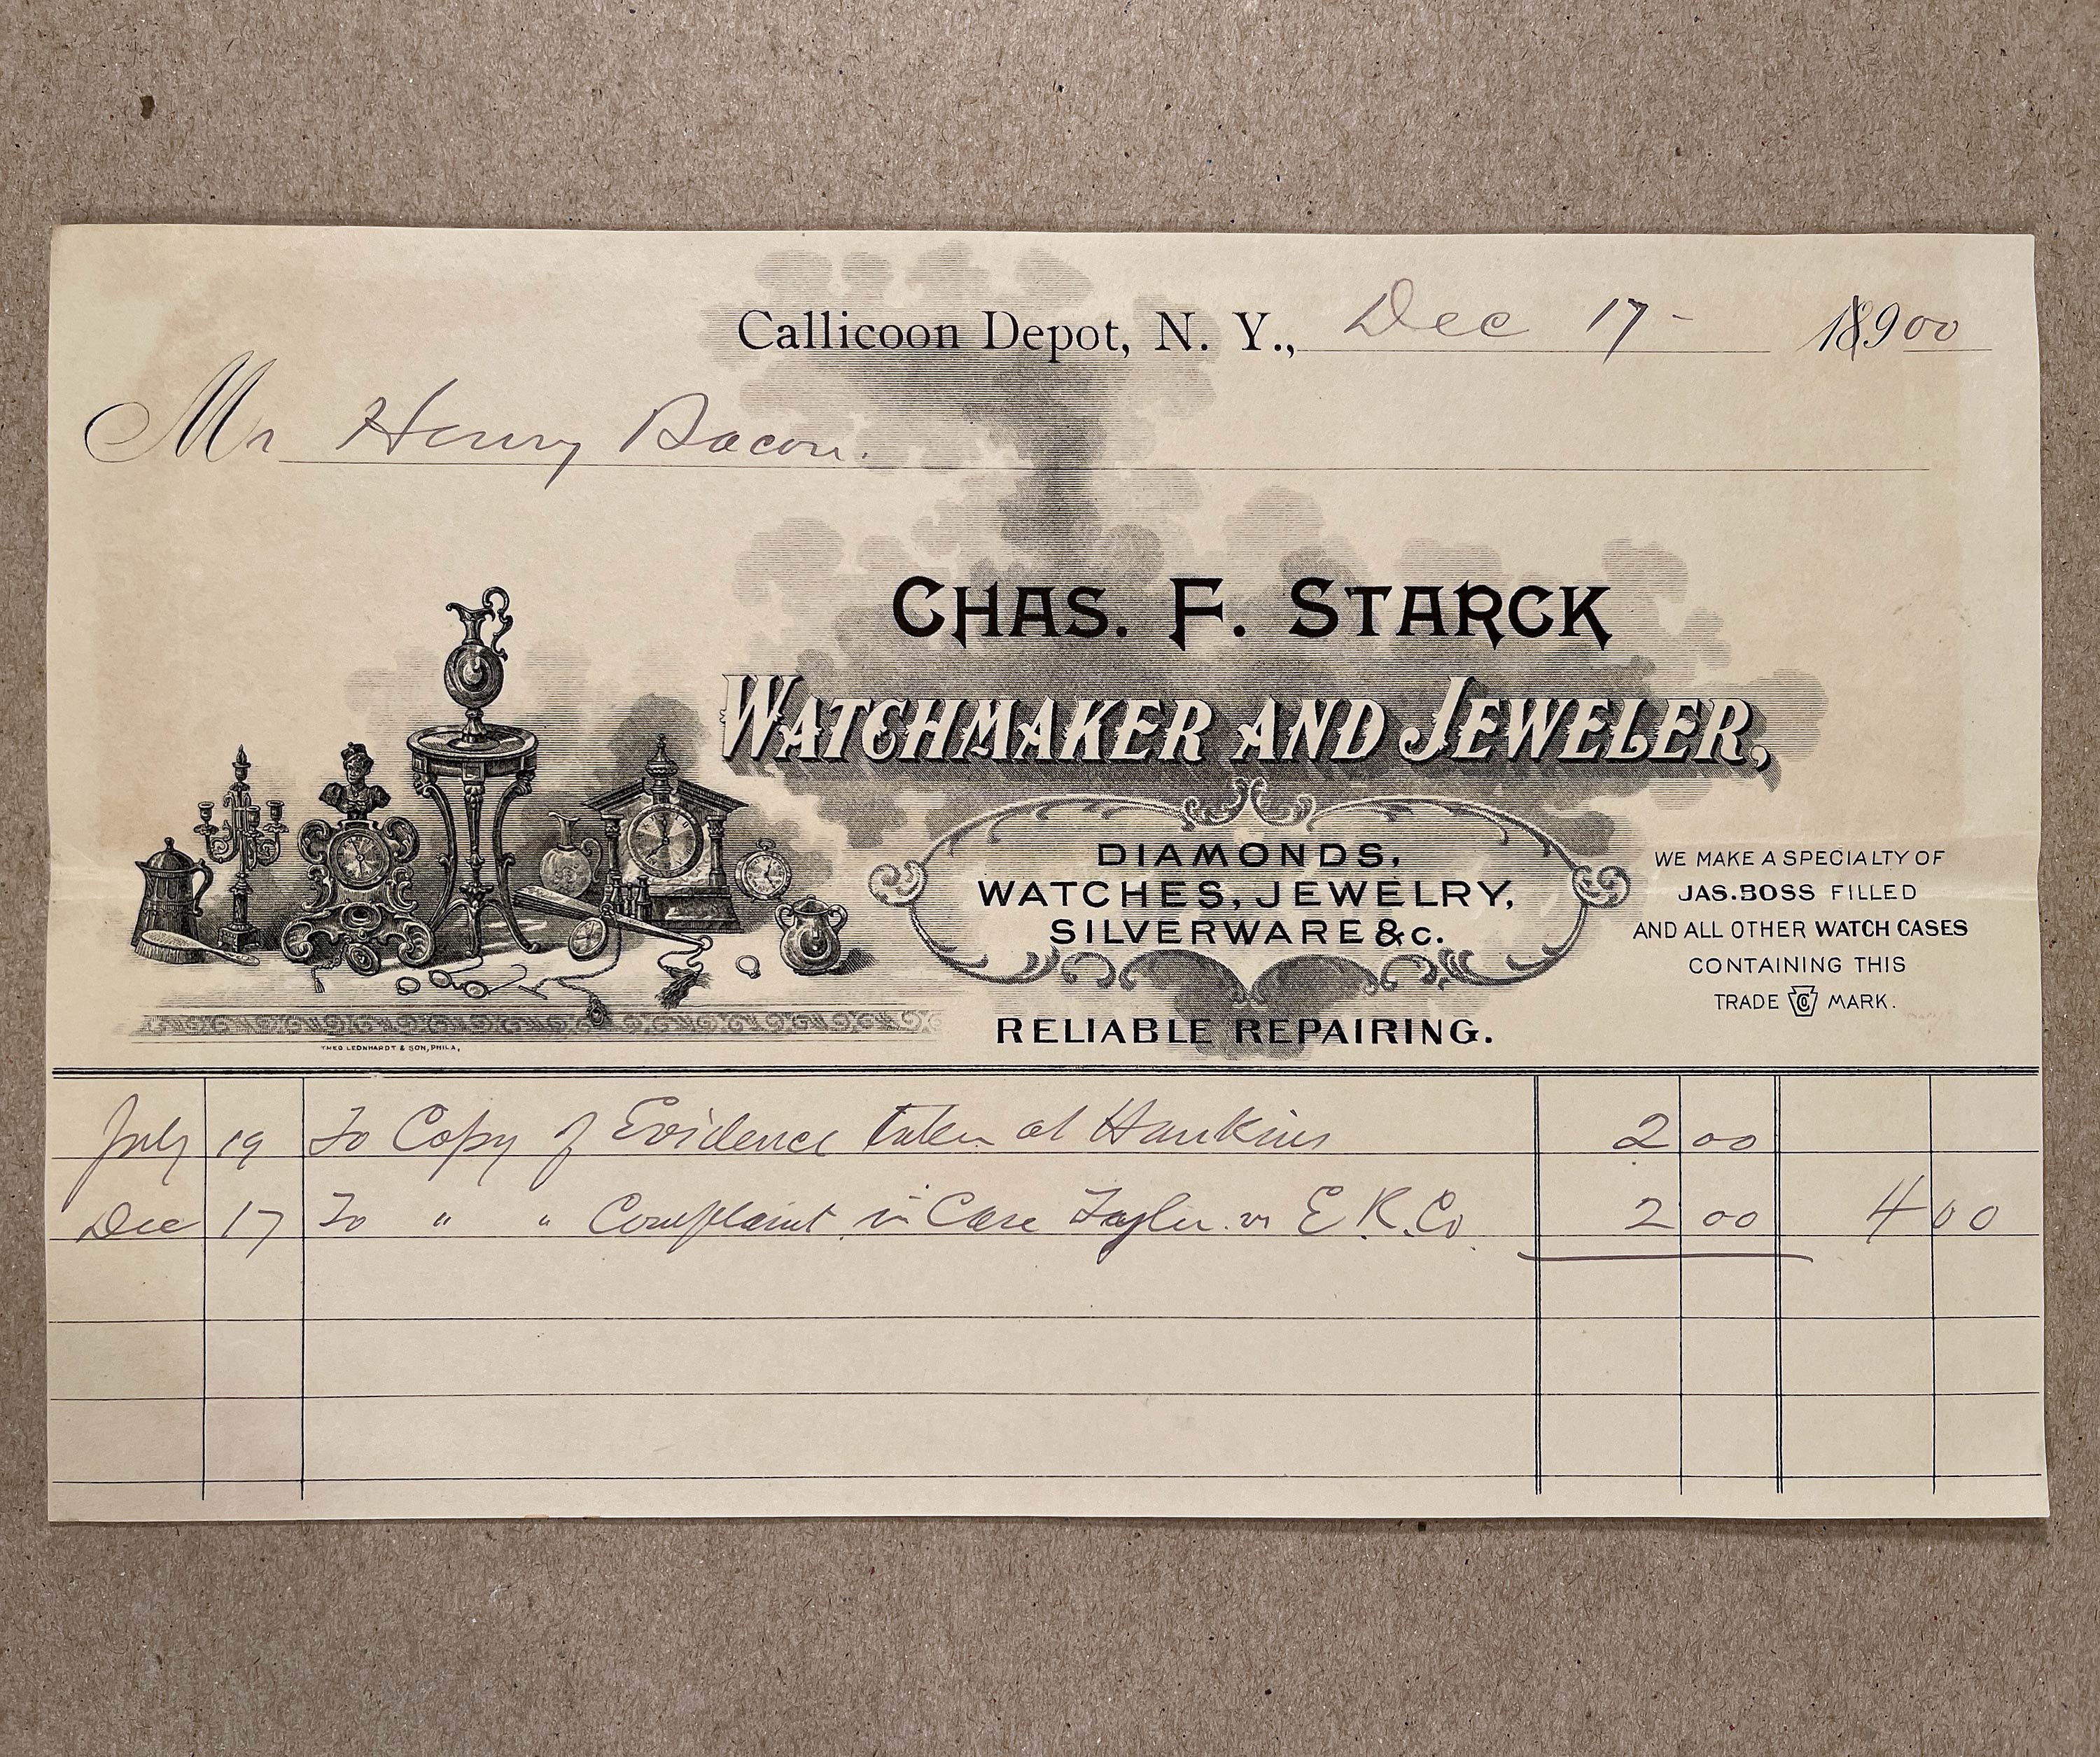 Callicoon Depot, N. Y., Dec 17- 18900
Mr Henry Bacon.
CHAS. F. STARCK
WATCHMAKER AND JEWELER,
DIAMONDS,
WATCHES, JEWELRY,
SILVERWARE &c.
RELIABLE REPAIRING.
WE MAKE A SPECIALTY OF
JAS. BOSS FILLED
AND ALL OTHER WATCH CASES
CONTAINING THIS
TRADE MARK.
THEO. LEONHARDT & SON, PHILA,
July 19 To Copy of Evidence taken at Hankins 2 00
Dec 17 To " " Complaint in Case Tayler vs E. R. Co. 2 00 4 00